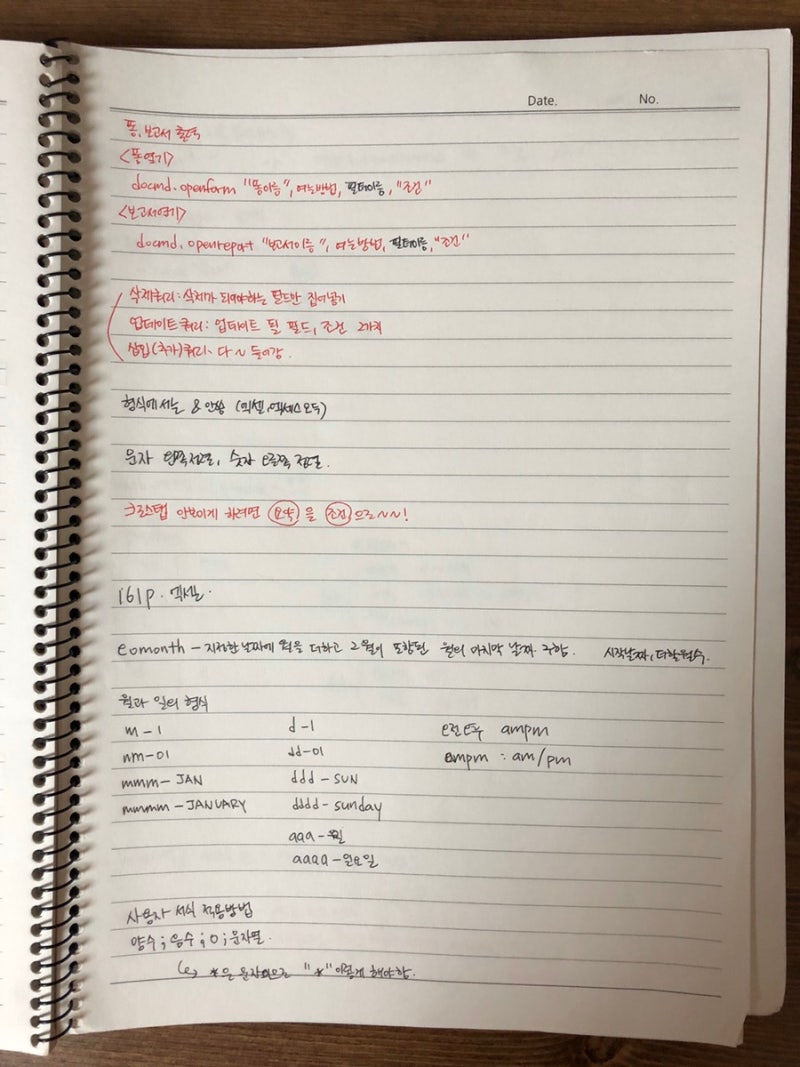 Date. No.
폼, 보고서 출력
<폼열기>
docmd.openform "폼이름", 여는방법, 필터이름, "조건"
<보고서열기>
docmd.openreport "보고서이름", 여는방법, 필터이름, "조건"
삭제쿼리: 삭제가 되어야하는 필드만 집어넣기
업데이트쿼리: 업데이트 될 필드, 조건 2가지
삽입(추가)쿼리: 다~ 들어감.
형식에서는 & 안씀 (엑셀, 엑세스 모두)
문자 왼쪽정렬, 숫자 오른쪽 정렬.
크로스탭 안보이게 하려면 요약 을 조건 으로~~!
161p. 엑셀.
eomonth - 지정한 날짜에 월을 더하고 그 월이 포함된 월의 마지막 날짜 구함. 시작날짜, 더할월수.
월과 일의 형식
m - 1 d - 1 오전오후 ampm
mm - 01 dd - 01 ampm : am/pm
mmm - JAN ddd - SUN
mmmm - JANUARY dddd - sunday
aaa - 월
aaaa - 월요일
사용자 서식 적용방법
양수 ; 음수 ; 0 ; 문자열.
*은 문자므로 "*" 이렇게 해야함.